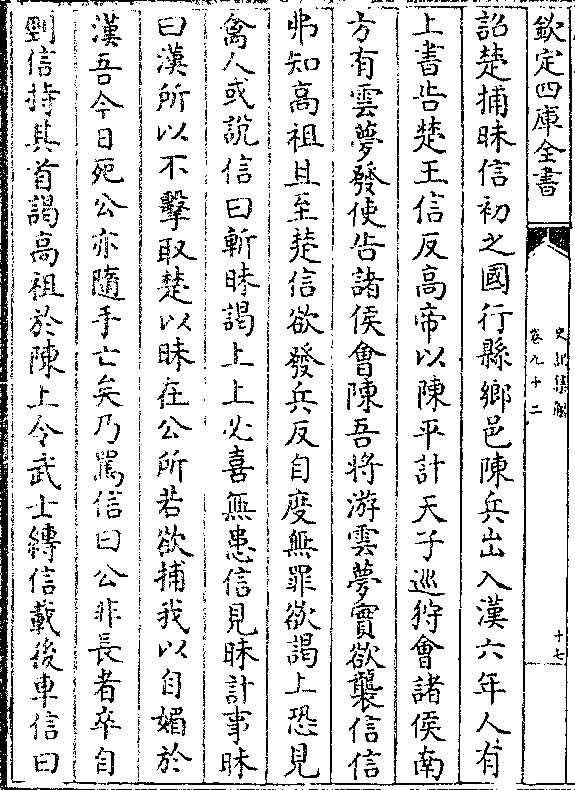 欽定四庫全書
史記集解
卷九十二
十七
詔楚捕昧信初之國行縣鄉邑陳兵出入漢六年人有
上書告楚王信反高帝以陳平計天子巡狩會諸侯南
方有雲夢發使告諸侯會陳吾將游雲夢實欲襲信信
弗知高祖且至楚信欲發兵反自度無罪欲謁上恐見
禽人或說信曰斬昧謁上上必喜無患信見昧計事昧
曰漢所以不擊取楚以昧在公所若欲捕我以自媚於
漢吾今日死公亦隨手亡矣乃罵信曰公非長者卒自
剄信持其首謁高祖於陳上令武士縛信載後車信曰